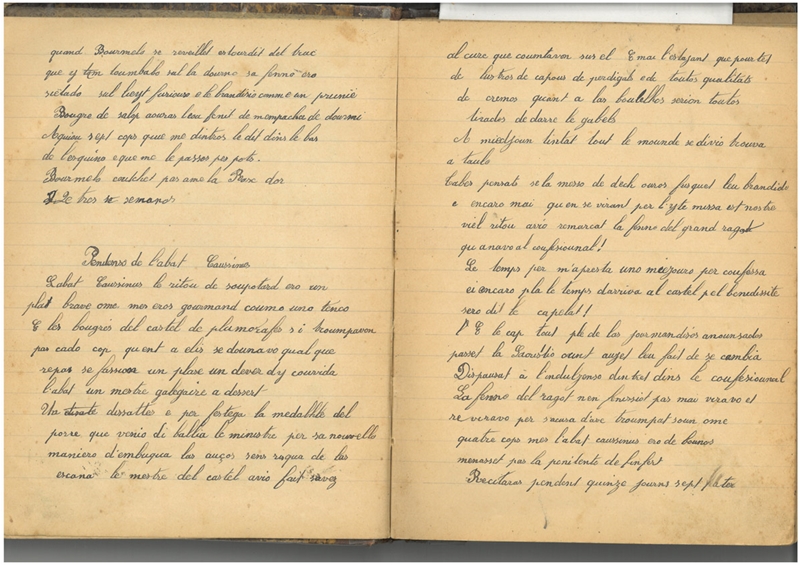 quand Bourmels se revuillet estourdit del truc
que ey tem toumbabo sul la dourno sa fenno ero
sietado sul lieyt furiouso e le brandissio comme un prunié
Bougro de salop aouras leou fenit de m'empacha de dourmi
Aquiou sept cops que me dintros le dit dins le bas
de l'esquino e que me le passos pes pots.
Bourmels couchet pas ame la Rose d'or
de tres se semanos
Pendenso de l'abat Caussinus
L'abat Caussinus le ritou de soupotard ero un
plat brave ome mes eros gourmand coumo uno tenco
E les bougres del castel de plumorafes s i troumpavon
pas cado cop qu ent a elis se dounavo qual que
repas se fasion un plase un dever d y couvida
l'abat un mestre galegaire a dessert
Un dissattes e per festega la medalhle del
porre que venio di ballia le ministre per sa nouvello
maniero d'embuqua las auços sens risqua de las
escana le mestre del castel avio fait savez
al cure que coumtavon sus el E mai l'estofant que pourtet
de lustres de capous de perdigals e de toutos qualitats
de cremos quant a las boutelhos serion toutos
tirados de darre le gabels
A miedjoun tintat tout le mounde se divio trouva
a taulo
Cabes pensats se la messo de dech ouros fusquet leu brandido
e encaro mai qu en se virant per l'yte missa est nostre
viel ritou avio remarcat la fenno del grand ragot
qu anavo al coufesiounal!
Le temps per m'apresta uno miejouro per coufessa
ei encaro pla le temps d'arriva al castel pel benedissite
sero dit le capelat!
E le cap tout ple de las gourmandisos anounsados
passet la Graoutio ount auzet leu fait de se cambia
Dispausat à l'indulgenso dintret dins le coufesiounal
La fenno del ragot n'en finission pas mau viravo et
re viravo per s'acusa d'ave troumpat soun ome
quatre cops mes l'abat caussinus ero de bounos
menasset pas la penitente de l'infert
Recitaras pendent quinze journs sept pater